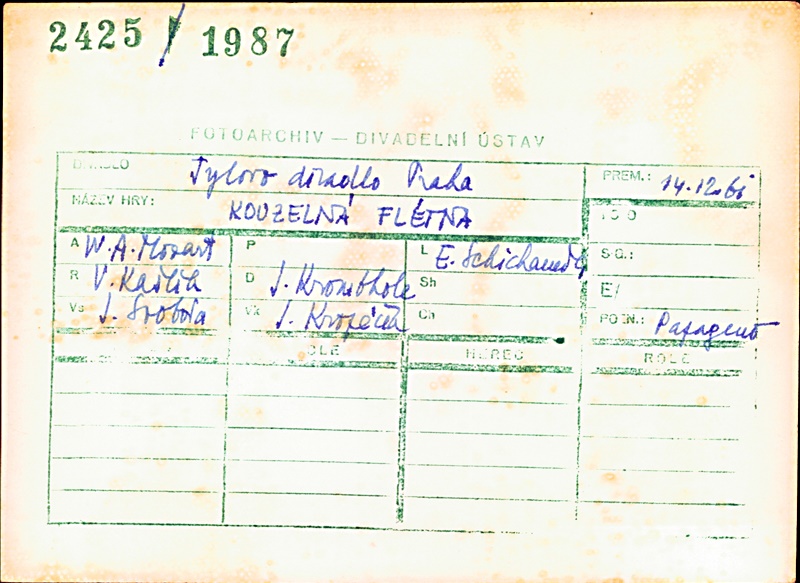 2425/1987
FOTOARCHIV — DIVADELNÍ ÚSTAV
DIVADLO Tylovo divadlo Praha PREM.: 14.12.61
NÁZEV HRY: KOUZELNÁ FLÉTNA
A W.A. Mozart P L E. Schichaneder SG.:
R V. Kašlík D J. Krombholc Sh E/
Vs J. Svoboda Vk J. Kropáček Ch POZN.: Papageno
HEREC ROLE